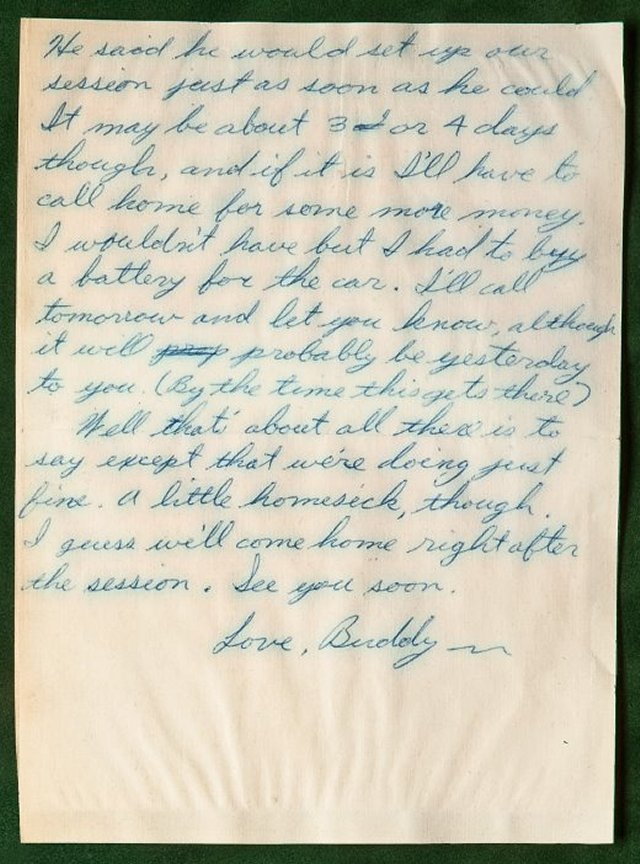 He said he would set up our
session just as soon as he could
It may be about 3 or 4 days
though, and if it is I'll have to
call home for some more money.
I wouldn't have but I had to buy
a battery for the car. I'll call
tomorrow and let you know, although
it will probably be yesterday
to you. (By the time this gets there)
Well that' about all there is to
say except that we're doing just
fine. A little homesick, though.
I guess we'll come home right after
the session. See you soon.
Love, Buddy